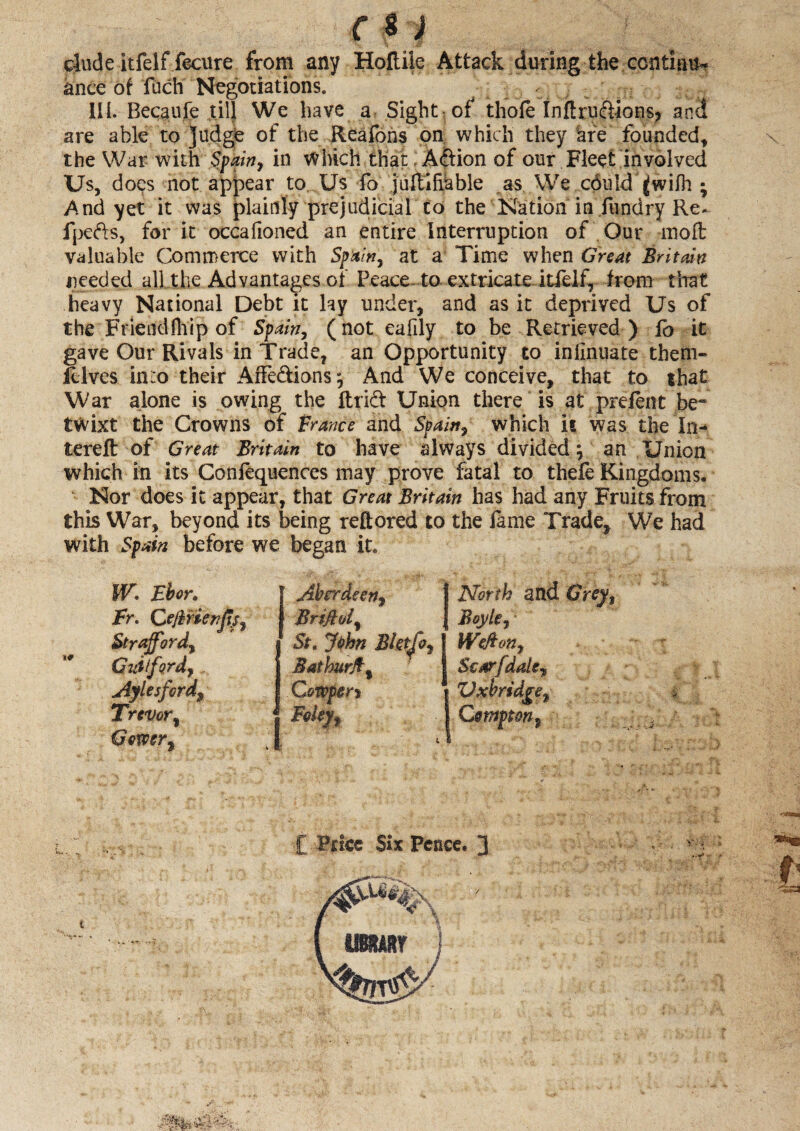 ( 8 )
clude itſelf ſecure from any Hoſtile Attack during the continu-
ance of ſuch Negotiations.
III. Becauſe till We have a Sight of thoſe Inſtructions, and
are able to Judge of the Reaſons on which they are founded,
the War with Spain, in which that Action of our Fleet involved
Us, does not appear to Us ſo juſtifiable as We could (wiſh ;
And yet it was plainly prejudicial to the Nation in ſundry Re-
ſpects, for it occaſioned an entire Interruption of Our moſt
valuable Commerce with Spain, at a Time when Great Britain
needed all the Advantages of Peace to extricate itſelf, from that
heavy National Debt it lay under, and as it deprived Us of
the Friendſhip of Spain, ( not eaſily to be Retrieved ) ſo it
gave Our Rivals in Trade, an Opportunity to inſinuate them-
ſelves into their Affections ; And We conceive, that to that
War alone is owing the ſtrict Union there is at preſent be-
twixt the Crowns of France and Spain, which it was the In-
tereſt of Great Britain to have always divided ; an Union
which in its Conſequences may prove fatal to theſe Kingdoms.
Nor does it appear, that Great Britain has had any Fruits from
this War, beyond its being reſtored to the ſame Trade, We had
with Spain before we began it.
W. Ebor.
Fr. Ceſtrienſis,
Strafford,
Guilford,
Aylesford,
Trevor,
Gower,
Aberdeen,
Briſtol,
St. John Bletſo,
Bathurſt,
Cowper,
Foley,
North and Grey,
Boyle,
Weſton,
Scarſdale,
Uxbridge,
Compton,
[ Price Six Pence. ]
LIBRARY